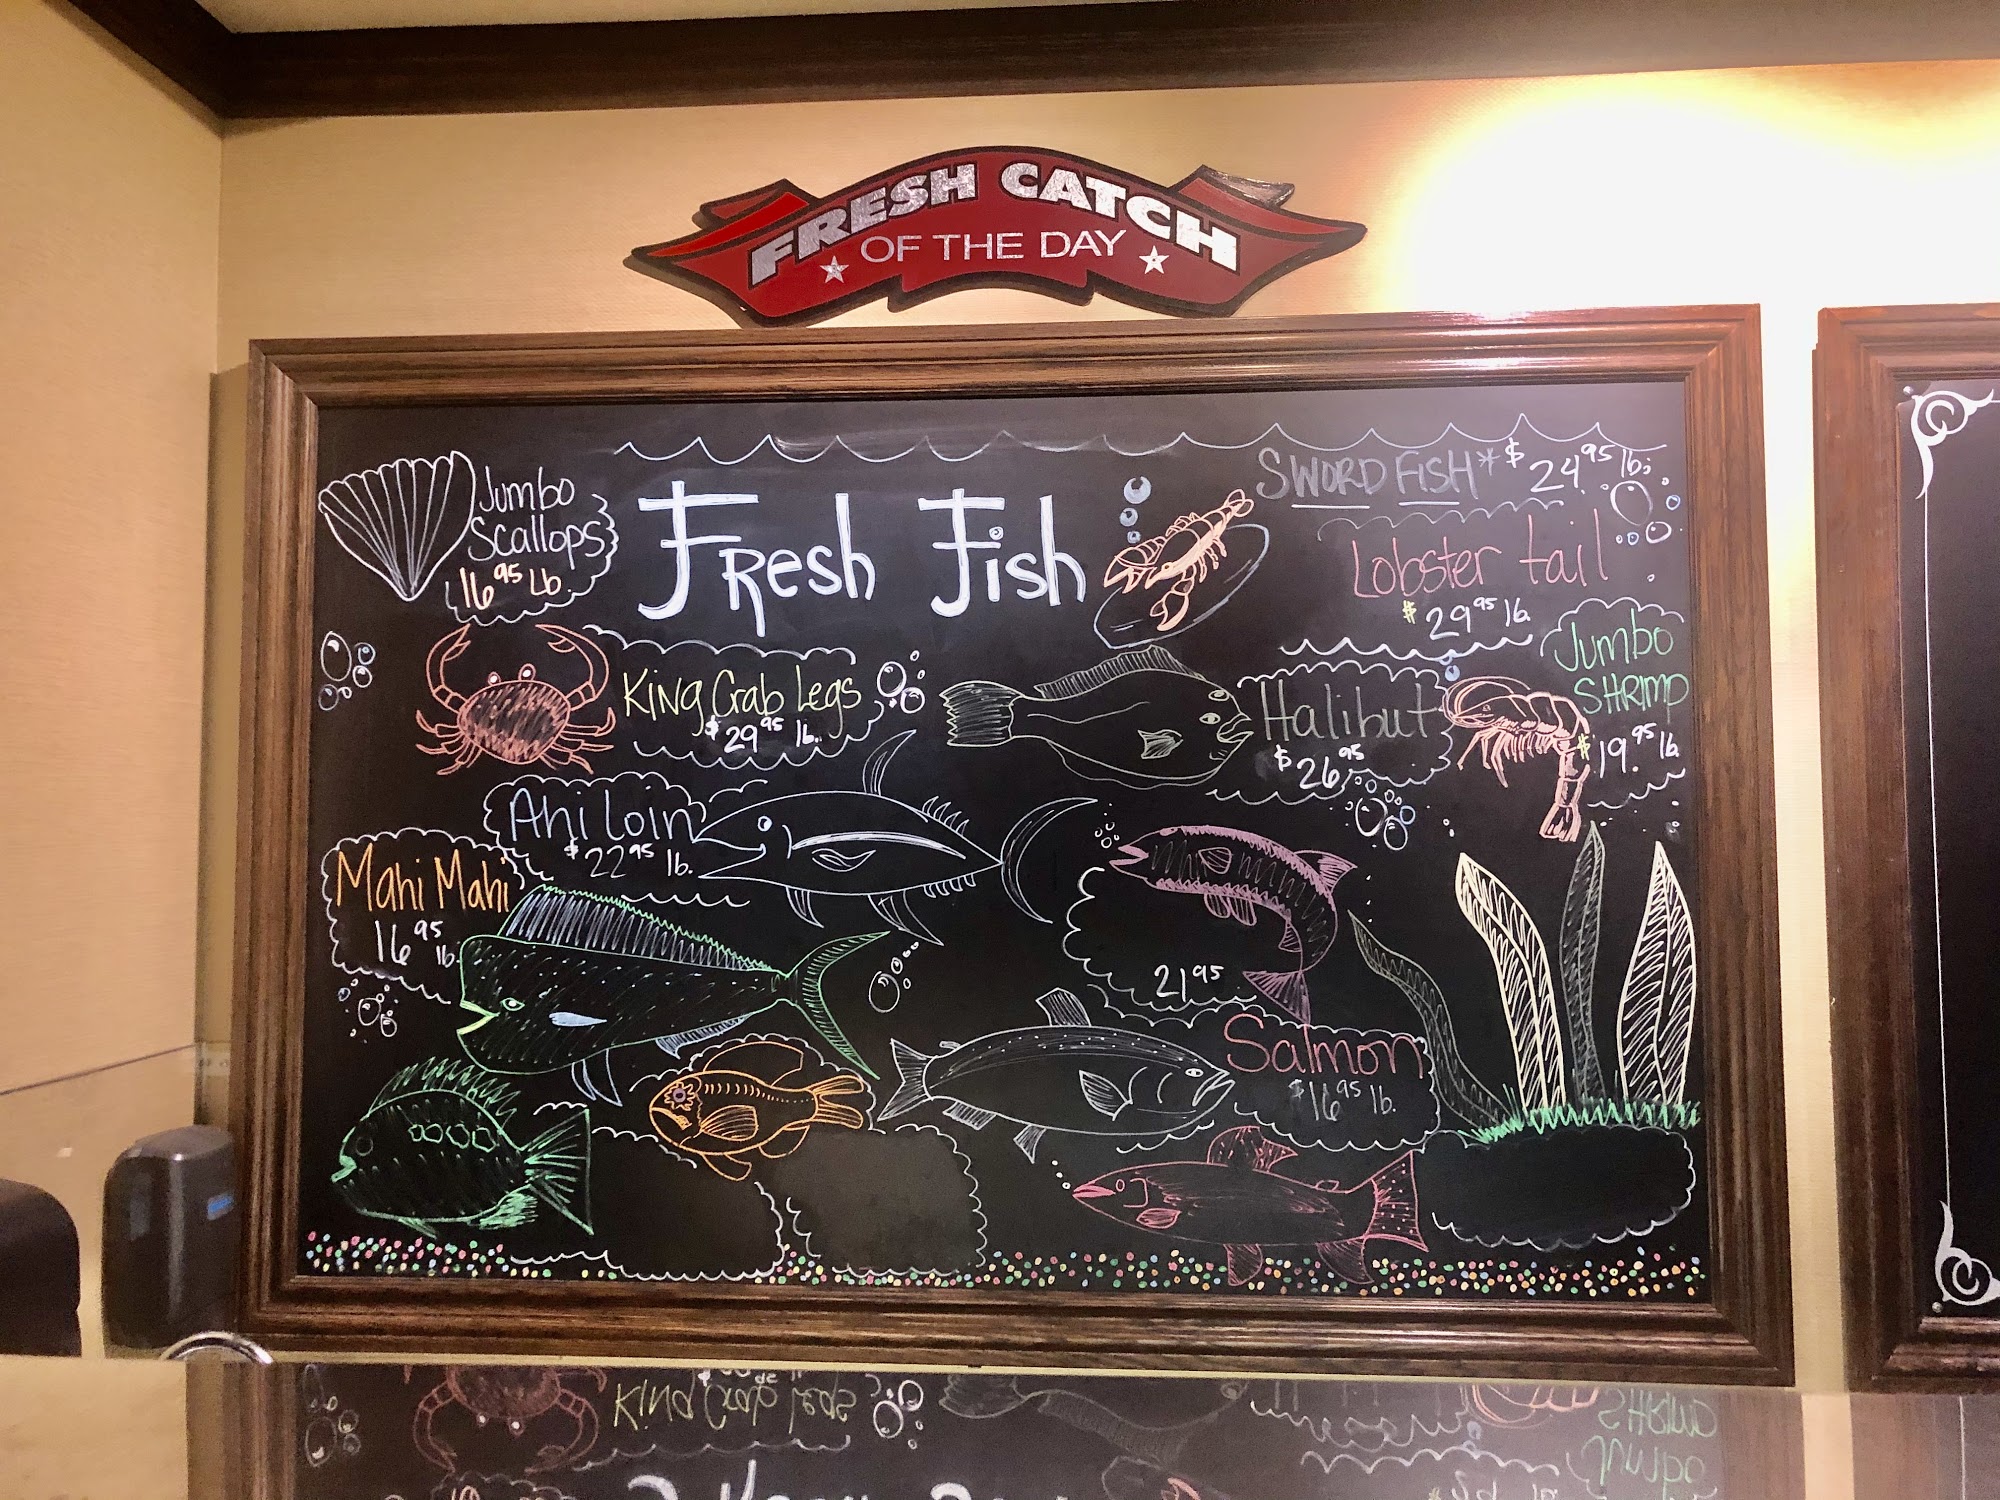 FRESH CATCH
OF THE DAY
Fresh Fish
Jumbo
Scallops
16.95 Lb.
SWORD FISH* $24.95 lb.
Lobster tail
$29.95 lb.
King Crab Legs
$29.95 lb.
Halibut
$26.95
Jumbo
SHRIMP
$19.95 lb.
Ahi Loin
$22.95 lb.
Mahi Mahi
16.95 lb.
21.95
Salmon
$16.95 lb.
King Crab Legs